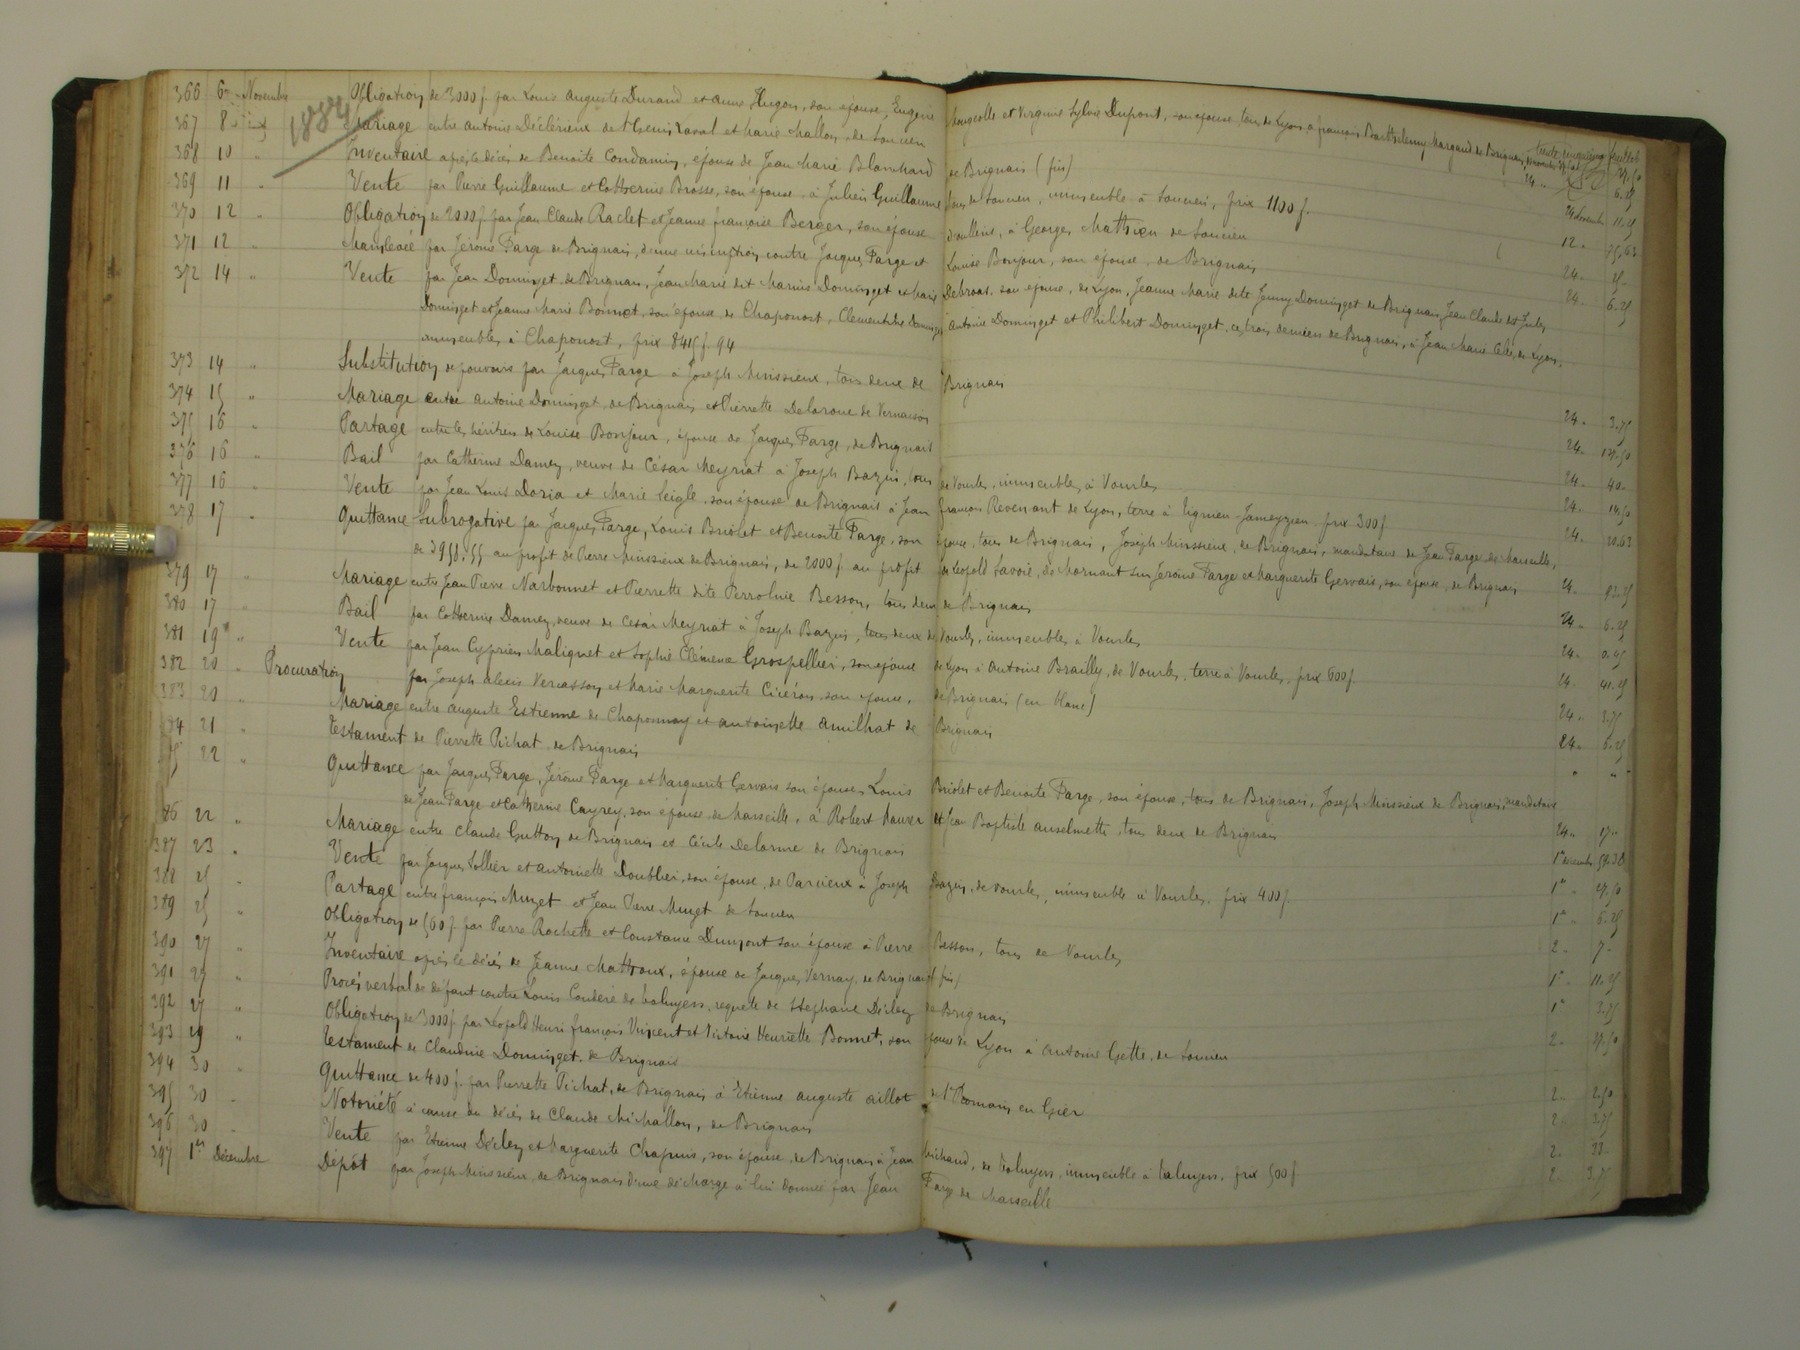 1884
trente cinquième feuillet
366 6 Novembre Obligation de 3000 f. par Louis Auguste Durand et Anne Hugon, son épouse, Eugène Mougeolle et Virginie Sylvie Dupont, son épouse, tous de Lyon à François Barthélemy Margand de Brignais
367 8 Mariage entre Antoine Déclérieux de St Genis Laval et Marie Mallon de Soucieu 24 6.25
368 10 " Inventaire après le décès de Benoite Condamin, épouse de Jean Marie Blanchard de Brignais (fin)
369 11 " Vente par Pierre Guillaume et Catherine Brosse, son épouse, à Julien Guillaume tous de Soucieu, immeuble à Soucieu, prix 1100 f.
370 12 " Obligation de 2000 f par Jean Claude Raclet et Jeanne Françoise Berger, son épouse d'Oullins, à Georges Mathieu de Soucieu
371 12 " Mainlevée par Jérôme Farge de Brignais, d'une inscription contre Jacques Farge et Louise Bonjour, son épouse, de Brignais
372 14 " Vente par Jean Dominget de Brignais, Jean Marie dit Marius Dominget et Marie Debroas, son épouse, de Lyon, Jeanne Marie dite Jenny Dominget de Brignais, Jean Claude dit Jules
Dominget et Jeanne Marie Bonnet, son épouse de Chaponost, Dominget Antoine Dominget et Philibert Dominget, ces trois derniers de Brignais, à Jean Marie de Lyon,
immeubles à Chaponost, prix 8415 f. 94
373 14 " Substitution de pouvoirs par Jacques Farge à Joseph Minssieux, tous deux de Brignais 24 " 3.75
374 15 " Mariage entre Antoine Dominget, de Brignais et Pierrette Delorme de Vernaison 24 "
375 16 " Partage entre les héritiers de Louise Bonjour, épouse de Jacques Farge, de Brignais 24 " 40 "
376 16 " Bail par Catherine Damey, veuve de César Meyriat à Joseph Bazin, tous de Vourles, immeubles à Vourles 24 "
377 16 " Vente par Jean Louis Doria et Marie Seigle, son épouse de Brignais à Jean François Revenant de Lyon, terre à Tignieu-Jameyzieu prix 300 f 24 " 20.62
378 17 " Quittance Subrogative par Jacques Farge, Louis Briolet et Benoite Farge, son épouse, tous de Brignais, Joseph Minssieux, de Brignais, mandataire de Jean Farge de Marseille,
de 3958.55 au profit de Pierre Minssieux de Brignais, de 2000 f au profit de Léopold Savoie, de Mornant sur Jérôme Farge et Marguerite Gervais, son épouse, de Brignais 24 "
379 17 " Mariage entre Jean Pierre Narbonnet et Pierrette dite Perroline Besson, tous deux de Brignais 24 " 6.25
380 17 " Bail par Catherine Damey, veuve de César Meyriat à Joseph Bazin, tous deux de Vourles, immeubles à Vourles 24 "
381 19 " Vente par Jean Cyprien Malignet et Sophie Clémence Grospellier, son épouse de Lyon à Antoine Brailly, de Vourles, terre à Vourles, prix 600 f 24 " 41.25
382 20 " Procuration par Joseph Alexis Vercasson et Marie Marguerite Cicéron, son épouse, de Brignais (en blanc) 24 " 3.75
383 20 " Mariage entre Auguste Estienne de Chaponnay et Antoinette Amilhat de Brignais 24 " 6.25
384 21 " Testament de Pierrette Pichat, de Brignais " " "
85 22 " Quittance par Jacques Farge, Jérôme Farge et Marguerite Gervais son épouse, Louis Briolet et Benoite Farge, son épouse, tous de Brignais, Joseph Minssieux de Brignais, mandataire
de Jean Farge et Catherine Cayrey, son épouse, de Marseille, à Robert Maurer et Jean Baptiste Anselmette, tous deux de Brignais 24 " 17 "
86 22 " Mariage entre Claude Gutton de Brignais et Cécile Delorme de Brignais 1er décembre
387 23 " Vente par Jacques Sollier et Antoinette Doublier, son épouse, de Parcieux à Joseph Bazin, de Vourles, immeuble à Vourles, prix 400 f. 1er " 27.50
388 25 " Partage entre François Muzet et Jean Pierre Muzet de Soucieu 1er " 6.25
389 25 " Obligation de 560 f par Pierre Rochette et Constance Dumont son épouse à Pierre Besson, tous de Vourles 2 " 7 "
390 27 " Inventaire après le décès de Jeanne Mattroux, épouse de Jacques Vernay, de Brignais (fin) 1er " 11.25
391 27 " Procès verbal de défaut contre Louis Couderc de Taluyers, requête de Stéphane Décley de Brignais 1er " 3.75
392 27 " Obligation de 3000 f par Léopold Henri François Vincent et Victoire Henriette Bonnet, son épouse de Lyon à Antoine Gette, de Soucieu 2 " 27.50
393 29 " Testament de Claudine Dominget, de Brignais
394 30 " Quittance de 400 f. par Pierrette Pichat, de Brignais à Etienne Auguste Aillot de St Romain en Gier 2 " 2.50
395 30 " Notoriété à cause du décès de Claude Michallon, de Brignais 2 " 3.75
396 30 " Vente par Etienne Décley et Marguerite Chapuis, son épouse, de Brignais à Jean Michaud, de Taluyers, immeuble à Taluyers, prix 500 f 2 "
397 1er Décembre Dépôt par Joseph Minssieux, de Brignais d'une décharge à lui donnée par Jean Farge de Marseille 2 " 3.75